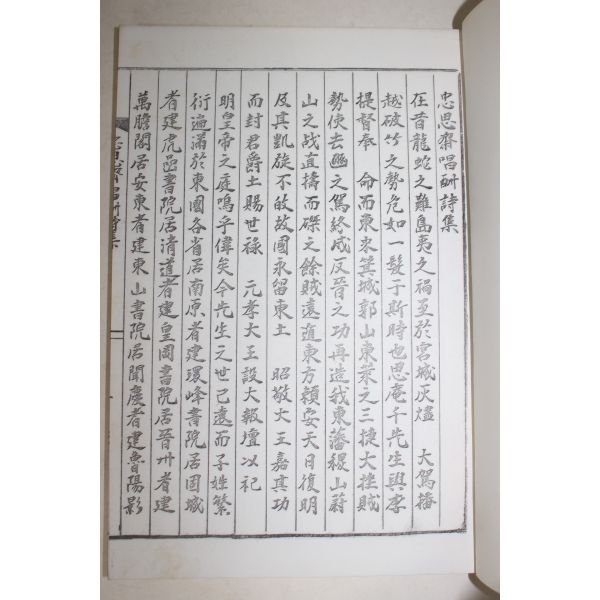 忠思齋唱酬詩集
在昔龍蛇之難島夷之禍至於宮城灰燼 大駕播
越破竹之勢危如一髮于斯時也思庵千先生與李
提督奉 命而東來箕城郭山東萊之三捷大挫賊
勢使去豳之駕終成反晉之功再造我東藩稷山蔚
山之戰直擣而磔之餘賊遠遁東方賴安天日復明
及其凱旋不敢故國永留東土 昭敬大王嘉其功
而封君爵土賜世祿 元孝大王設大報壇以祀
明皇帝之庭嗚乎偉矣今先生之世已遠而子姓繁
衍遍滿於東國各省居南原者建環峰書院居固城
者建虎邑書院居清道者建皇岡書院居晉州者建
萬膽閣居安東者建東山書院居聞慶者建魯陽影
忠思齋唱酬詩集